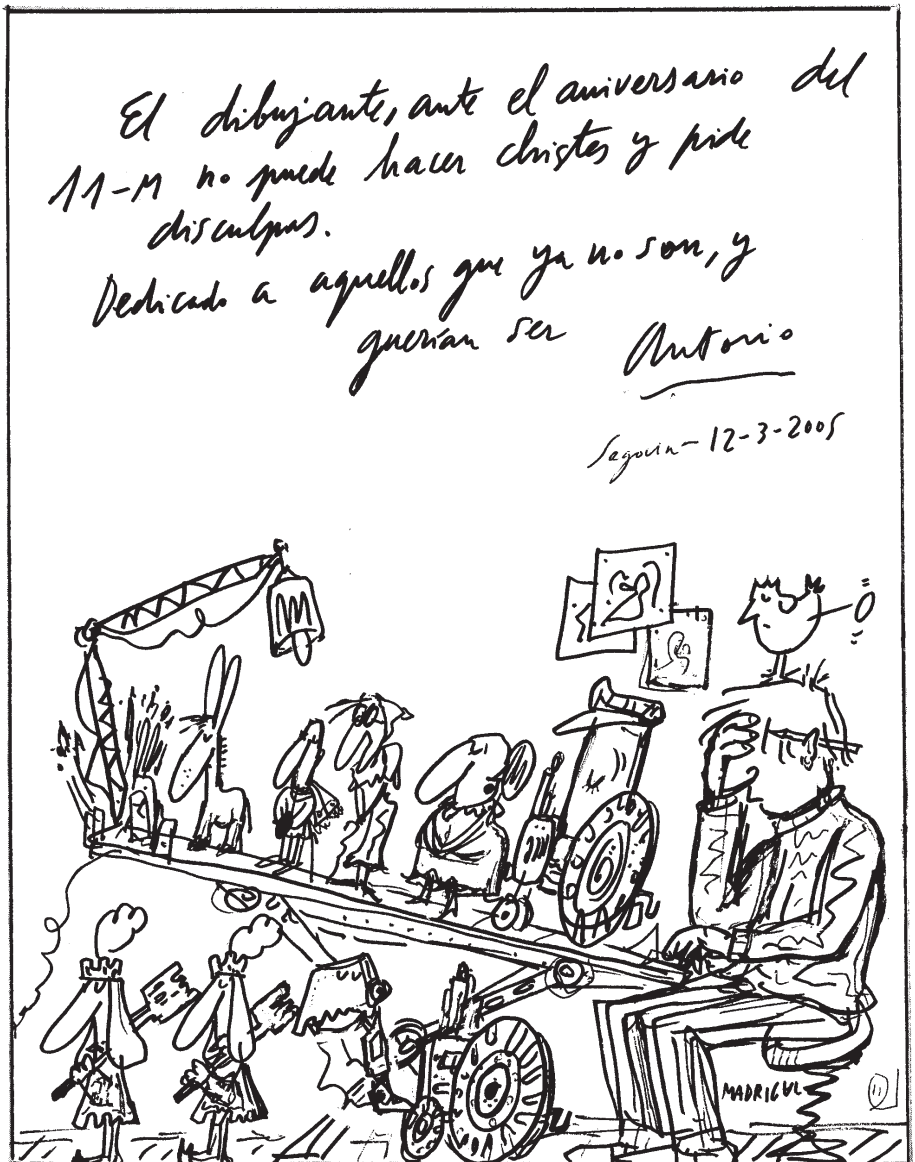 El dibujante, ante el aniversario del
11-M no puede hacer chistes y pide
disculpas.
Dedicado a aquellos que ya no son, y
querían ser
Antonio
Segovia - 12-3-2005
MADRIGUL